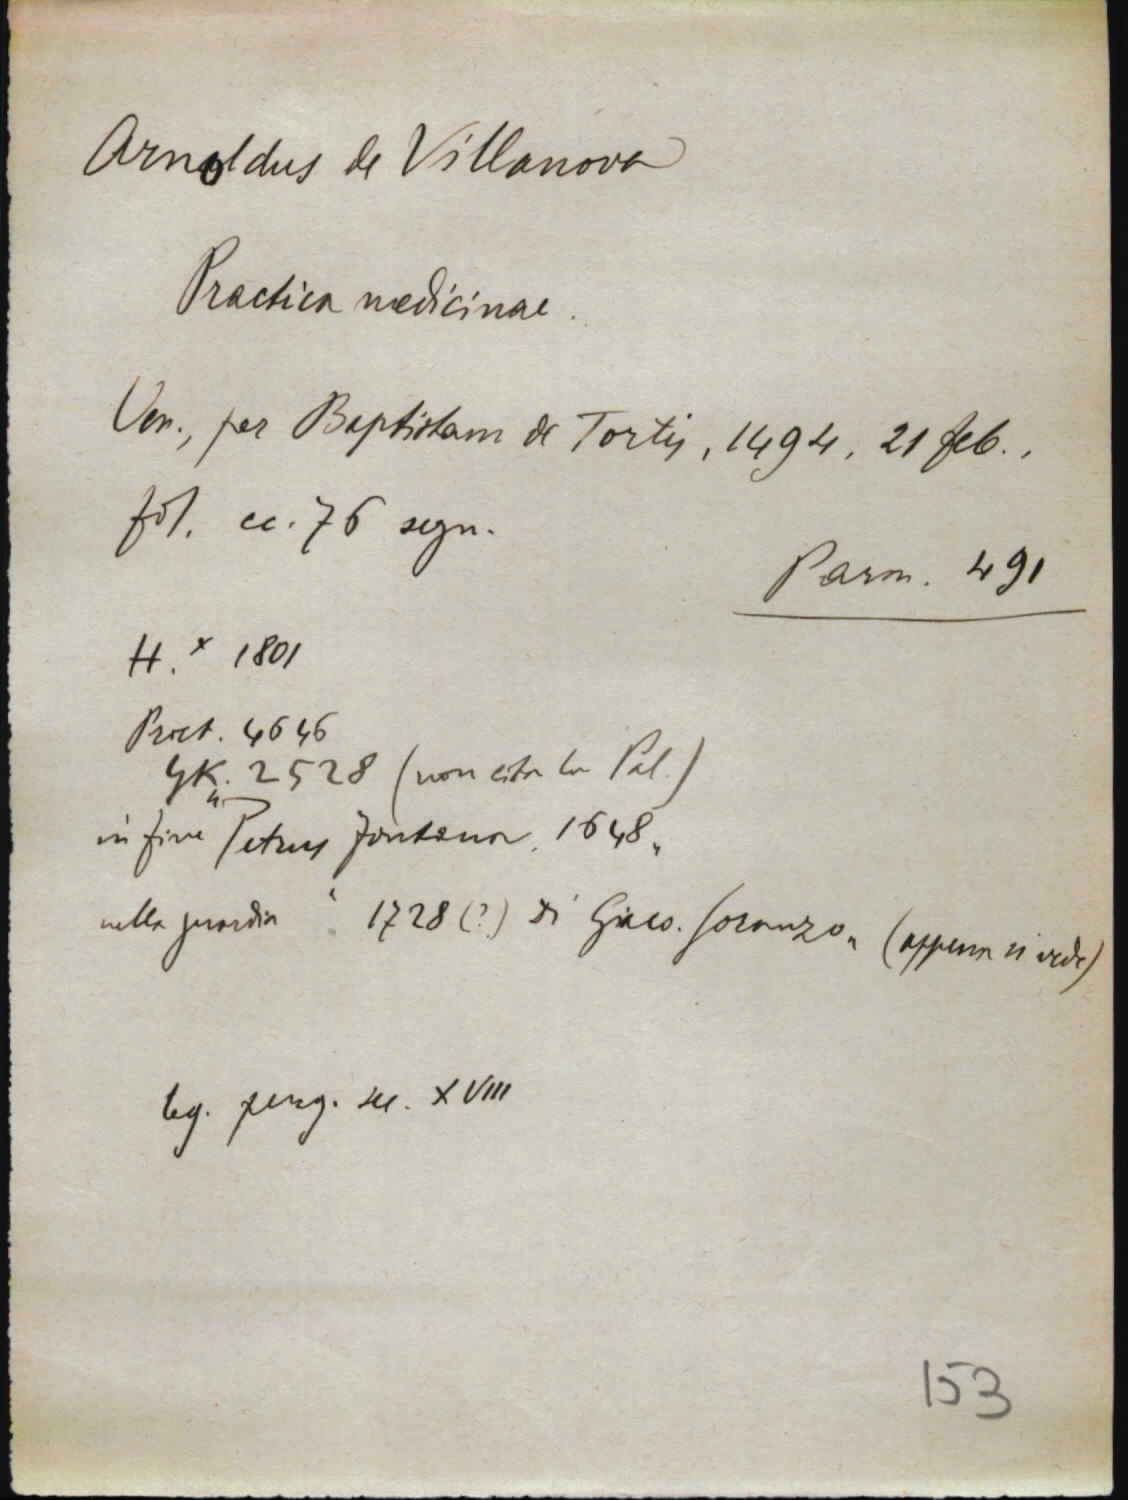 Arnoldus de Villanova
Practica medicinae.
Ven., per Baptistam de Tortis, 1494, 21 feb.,
fol. cc. 76 segn.
Parm. 491
H.* 1801
Proct. 4646
GK. 2528 (non cita la Pal.)
in fine "Petrus Fontana. 1648"
nella guardia " 1728 (?) di Giaco. Soranzo" (appena si vede)
leg. perg. sec. XVIII
153